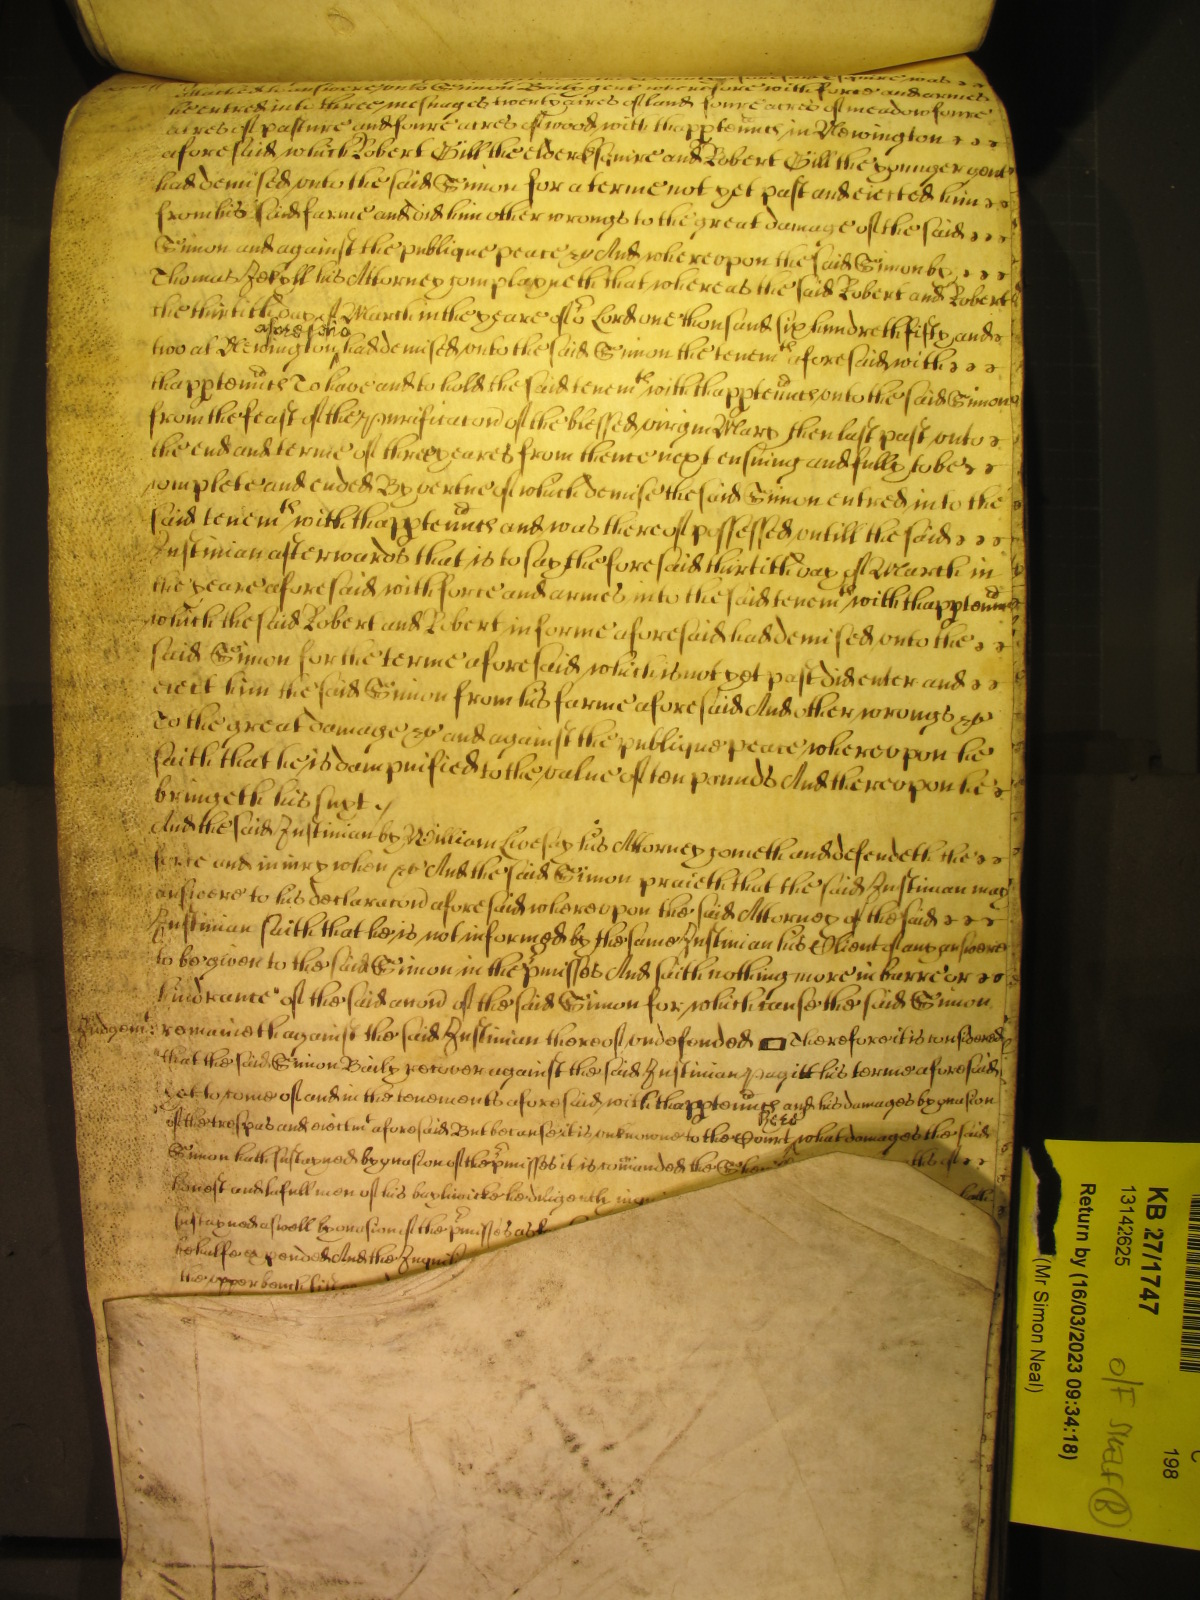 attached to answere unto Simon Baily gent wherefore with force and armes
he entred into three mesuages twenty acres of land foure acres of meadow foure
acres of pasture and foure acres of wood with thapptennces in Newington
aforesaid which Robert Gill the elder Esquire and Robert Gill the younger gent
had demised unto the said Simon for a terme not yet past and eiected him
from his said farme and did him other wrongs to the great damage of the said
Simon and against the publique peace &c And whereupon the said Simon by
Thomas Jekyll his Attorney complayneth that whereas the said Robert and Robert
the thirtith day of March in the yeare of or Lord one thousand six hundreth fifty and
two at Newington aforesaid had demised unto the said Simon the tenemts aforesaid with
thapptennces To have and to hold the said tenemts with thapptennces unto the said Simon
from the feast of the purificacon of the blessed virgin Mary then last past unto
the end and terme of three yeares from thence next ensuing and fully to be
complete and ended By vertue of which demise the said Simon entred into the
said tenemts with thapptennces and was thereof possessed untill the said
Justinian afterwards that is to say the foresaid thirtith day of March in
the yeare aforesaid with force and armes into the said tenemts with thapptennces
which the said Robert and Robert in forme aforesaid had demised unto the
said Simon for the terme aforesaid which is not yet past did enter and
eiect him the said Simon from his farme aforesaid And other wrongs &c
To the great damage &c and against the publique peace whereupon he
saith that he is dampnified to the value of ten pounds And thereupon he
bringeth his suyt &c
And the said Justinian by William Livesay his Attorney cometh and defendeth the
force and iniury when &c And the said Simon praieth that the said Justinian may
answere to his declaracon aforesaid whereupon the said Attorney of the said
Justinian saith that he is not informed by the same Justinian his Client of any answere
to be given to the said Simon in the pmisses And saith nothing more in barre or
hindrance of the said accon of the said Simon for which cause the said Simon
Judgemt: remaineth against the said Justinian thereof undefended Therefore it is considered
that the said Simon Baily recover against the said Justinian Pagitt his terme aforesaid
yet to come of and in the tenements aforesaid with thapptennces and his damages by reason
of the trespas and eiectmt aforesaid But because it is unknowne to the Court here what damages the said
Simon hath sustayned by reason of the pmisses it is comanded the
honest and lafull men of his baylywicke he diligently
sustayned aswell by reason of the pmisses as
behalfe expended And the Inquis
the upper bench
KB 27/1747
13142625
198
Return by (16/03/2023 09:34:18)
(Mr Simon Neal)
O/F